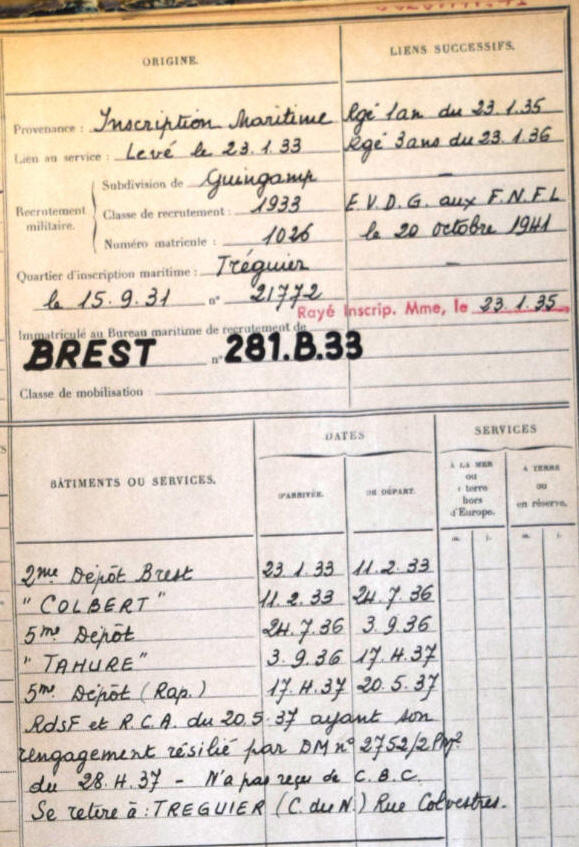 ORIGINE.
LIENS SUCCESSIFS.
Provenance : Inscription Maritime
Rgé 1an du 23.1.35
Lien au service : Levé le 23.1.33
Rgé 3ans du 23.1.36
Recrutement militaire.
Subdivision de Guingamp
Classe de recrutement : 1933
E.V.D.G. aux F.N.F.L
Numéro matricule : 1026
le 20 octobre 1941
Quartier d'inscription maritime : Tréguier
le 15.9.31 n° 21772
Rayé Inscrip. Mme, le 23.1.35.
Immatriculé au Bureau maritime de recrutement de
BREST n° 281.B.33
Classe de mobilisation :
BÂTIMENTS OU SERVICES.
DATES
D'ARRIVÉE.
DE DÉPART.
SERVICES
À LA MER
ou
à terre
hors
d'Europe.
À TERRE
ou
en réserve.
m. j. m. j.
2me Dépôt Brest 23.1.33 11.2.33
"COLBERT" 11.2.33 24.7.36
5me Dépôt 24.7.36 3.9.36
"TAHURE" 3.9.36 17.4.37
5me Dépôt (Rap.) 17.4.37 20.5.37
RdsF et R.C.A. du 20.5.37 ayant son
rengagement résilié par DM n° 2752/2
du 28.4.37 - N'a pas reçu de C.B.C.
Se retire à : TREGUIER (C. du N.) Rue Colvestres.